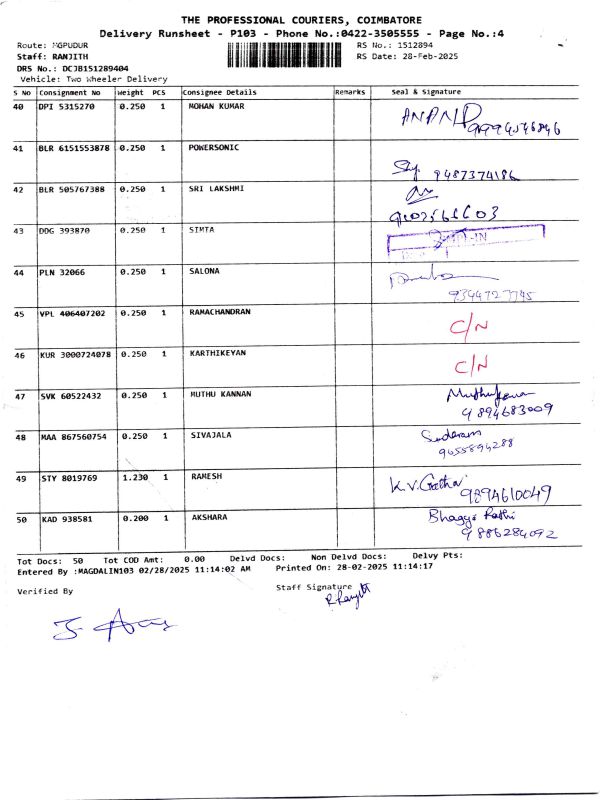 THE PROFESSIONAL COURIERS, COIMBATORE
Delivery Runsheet - P103 - Phone No.:0422-3505555 - Page No.:4
Route: MGPUDUR RS No.: 1512894
Staff: RANJITH RS Date: 28-Feb-2025
DRS No.: DCJB151289404
Vehicle: Two Wheeler Delivery
S No Consignment No Weight PCS Consignee Details Remarks Seal & Signature
40 DPI 5315270 0.250 1 MOHAN KUMAR ANAND
41 BLR 6151553878 0.250 1 POWERSONIC
9487374186
42 BLR 505767388 0.250 1 SRI LAKSHMI
43 DDG 393870 0.250 1 SIMTA
44 PLN 32066 0.250 1 SALONA
9344727745
45 VPL 406407202 0.250 1 RAMACHANDRAN C/N
46 KUR 3000724078 0.250 1 KARTHIKEYAN C/N
47 SVK 60522432 0.250 1 MUTHU KANNAN
9894683009
48 MAA 867560754 0.250 1 SIVAJALA
9655894288
49 STY 8019769 1.230 1 RAMESH K.V. Geetha
9894610049
50 KAD 938581 0.200 1 AKSHARA Bhagya Rathi
9886284092
Tot Docs: 50 Tot COD Amt: 0.00 Delvd Docs: Non Delvd Docs: Delvy Pts:
Entered By :MAGDALIN103 02/28/2025 11:14:02 AM Printed On: 28-02-2025 11:14:17
Verified By Staff Signature